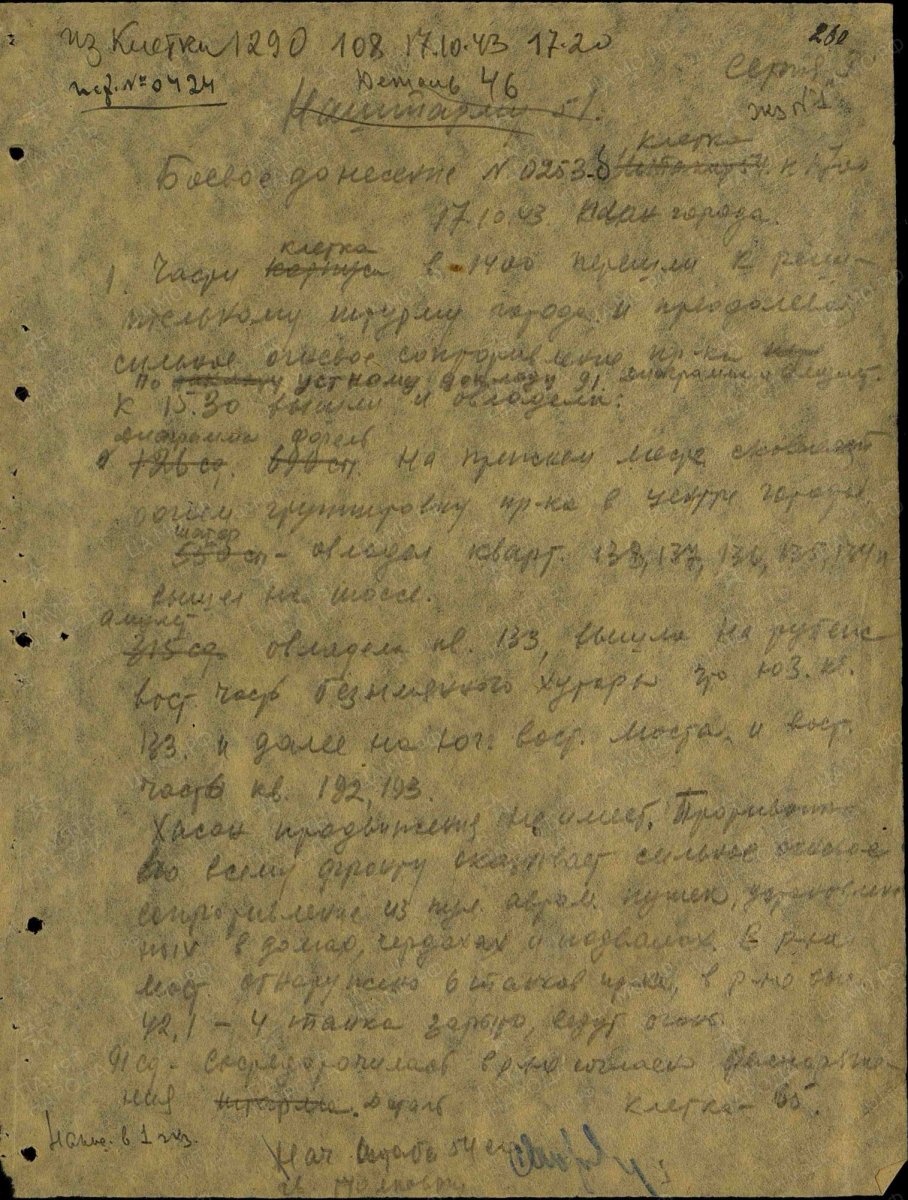 из Клетки 1290 108 17.10.43 17.20
260
исх. № 0424
Деталь 46
Серия
экз № 1
Наштарм 51.
Боевое донесение № 0253 клетка к 1700
17.10.43. План города.
1. Части корпуса клетка в 1400 перешли к реши-
тельному штурму города и преодолевая
сильное огневое сопротивление пр-ка
По устному докладу
к 15.30 вышли и овладели:
126 сд. 690 сп. На прежнем месте сковывает
огнем группировку пр-ка в центре города
550 сп – овладел кварт. 138, 137, 136, 135, 134 и
вышел на шоссе.
амулет
315 сд овладела кв. 133, вышла на рубеж
вост. часть безымянного хутора юз. кв.
133. и далее на юг. вост. моста. и вост.
часть кв. 192, 193.
Хасан продвижения не имеет. Противник
по всему фронту оказывает сильное огневое
сопротивление из пул. автом. пушек, установлен
ных в домах, чердахах и подвалах. В р-не
обнаружено 6 танков пр-ка, в р-не выс
42,1 – 4 танка зарыто, ведут огонь.
91 сд – сосредоточилась в р-не согласно распоряже-
ния штарма. деталь клетка – 65.
Напис. в 1 экз.
Нач штаба 54 ск